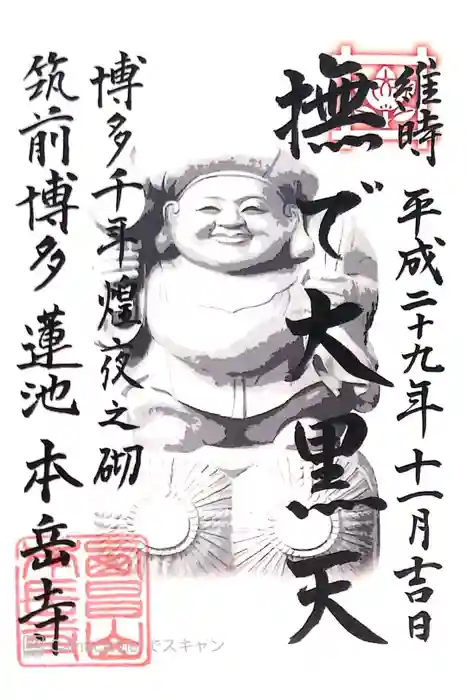 維時 平成二十九年十一月吉日
撫で大黒天
博多千年煌夜之砌
筑前博多 蓮池 本岳寺
でスキャン